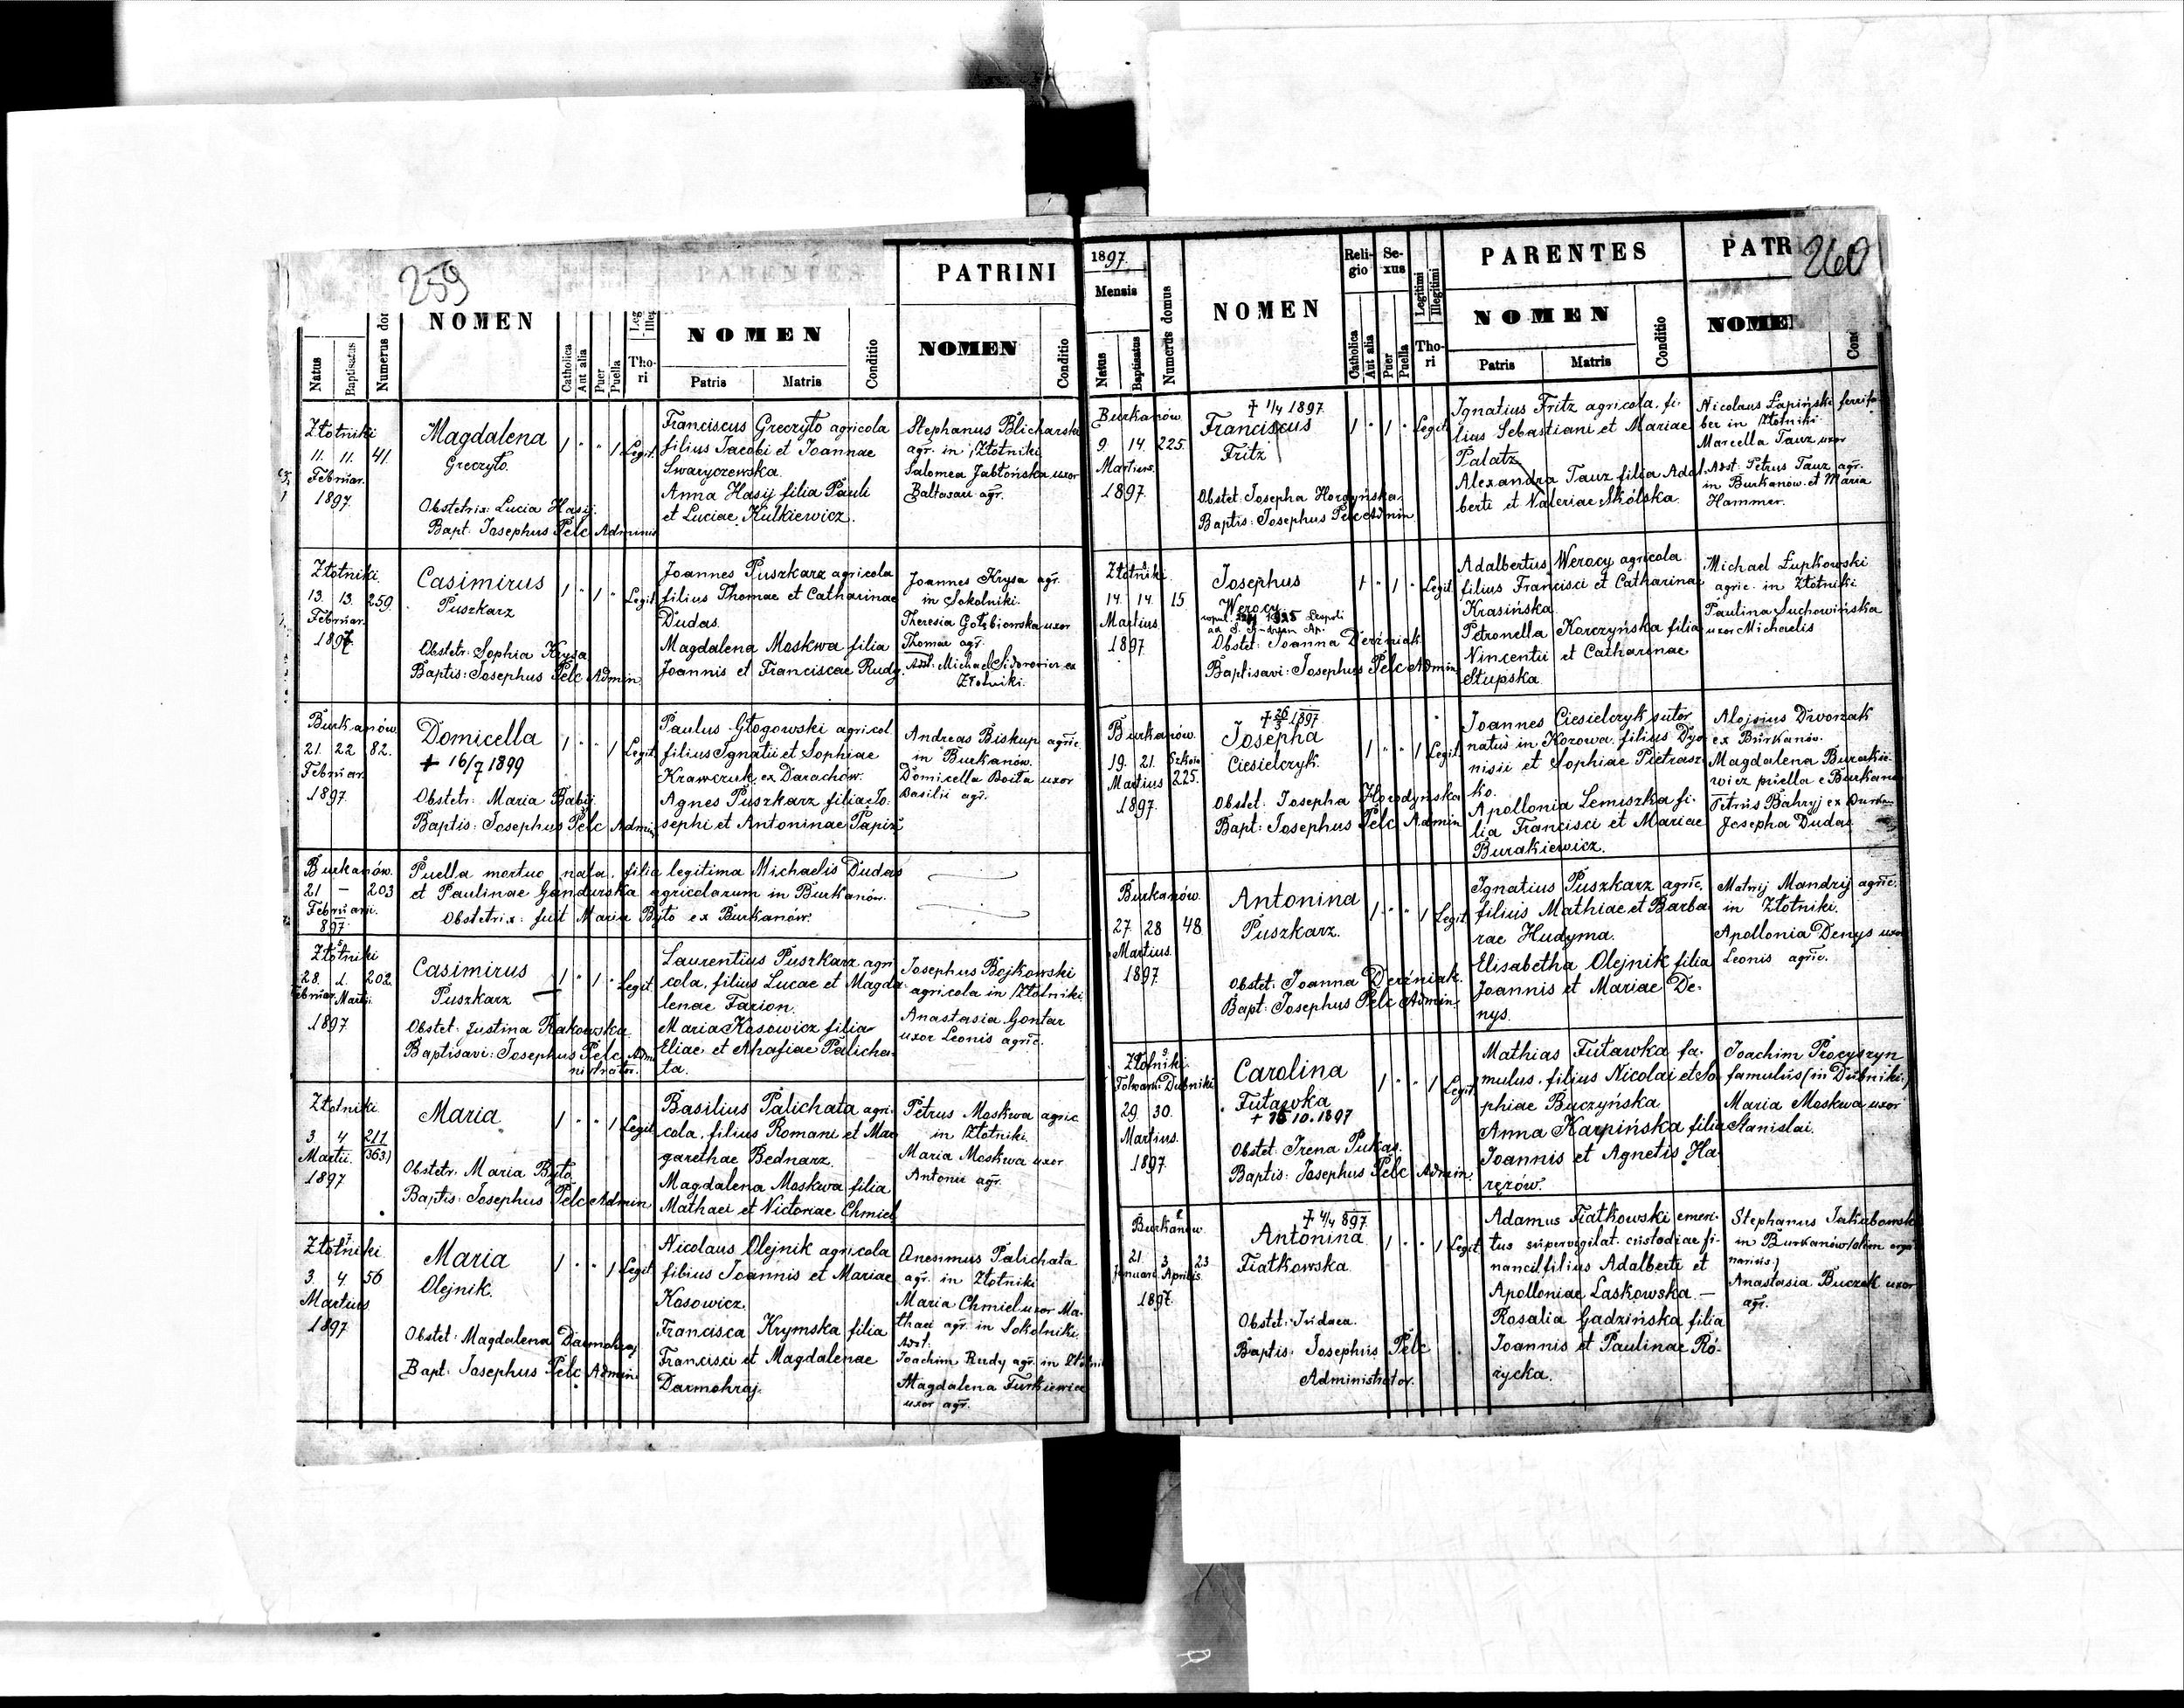 259
NOMEN
PARENTES
PATRINI
NOMEN
NOMEN
Natus
Baptisatus
Catholica
Aut alia
Puer
Puella
Tho-
ri
Patris
Matris
Conditio
Conditio
Złotniki
11. 11. 41.
Februar.
1897
Magdalena
Greczyło.
Obstetrix: Lucia Hasij.
Bapt: Josephus Pelc Adminis
1 " " 1 Legit.
Franciscus Greczyło agricola
filius Jacobi et Joannae
Swaryczewska.
Anna Hasij filia Pauli
et Luciae Kulkiewicz.
Stephanus Blicharski
agr. in Złotniki
Salomea Jabłońska uxor
Baltasari agr.
Złotniki.
13. 13. 259
Februar.
1897
Casimirus
Puszkarz
Obstetr: Sophia Krysa
Baptis: Josephus Pelc Admin.
1 " 1 " Legit.
Joannes Puszkarz agricola
filius Thomae et Catharinae
Dudas.
Magdalena Moskwa filia
Joannis et Franciscae Rudy.
Joannes Krysa agr.
in Sokolniki.
Theresia Gołębiowska uxor
Thomae agr.
Adst: Michael Sidorowicz ex
Złotniki.
Burkanów.
21. 22 82.
Februar
1897.
Domicella
+ 16/7 1899
Obstetr: Maria Babij
Baptis: Josephus Pelc Admin
1 " " 1 Legit.
Paulus Głogowski agricol.
filius Ignatii et Sophiae
Krawczuk ex Darachów.
Agnes Puszkarz filia Jo-
sephi et Antoninae Papiż
Andreas Biskup agric.
in Burkanów.
Domicella Boita uxor
Basilii agr.
Burkanów.
21 — 203
Februarii.
897
Puella mortuo nata, filia legitima Michaelis Dudas
et Paulinae Gandurska agricolarum in Burkanów.
Obstetrix: fuit Maria Byto ex Burkanów.
Złotniki
28. 1. 202.
Februar. Martii.
1897
Casimirus
Puszkarz
Obstet: Justina Rakowska
Baptisavi: Josephus Pelc Admi
nistrator.
1 " 1 " Legit.
Laurentius Puszkarz agri
cola, filius Lucae et Magda-
lenae Farion.
Maria Kosowicz filia
Eliae et Ahafiae Palicha-
ta.
Josephus Bojkowski
agricola in Złotniki.
Anastasia Gontar
uxor Leonis agric.
Złotniki.
3. 4 211
Martii. (363.)
1897
Maria
Obstetr. Maria Byto,
Baptis: Josephus Pelc Admin
1 " " 1 Legit
Basilius Palichata agri-
cola, filius Romani et Mar
garethae Bednarz.
Magdalena Moskwa filia
Mathaei et Victoriae Chmiel
Petrus Moskwa agric
in Złotniki
Maria Moskwa uxor
Antonii agr.
Złotniki
3. 4. 56
Martius
1897
Maria
Olejnik.
Obstet: Magdalena Darmohraj
Bapt: Josephus Pelc Admin
1 " " 1 Legit
Nicolaus Olejnik agricola
filius Joannis et Mariae
Kosowicz.
Francisca Krymska filia
Francisci et Magdalenae
Darmohraj.
Onesimus Palichata
agr. in Złotniki
Maria Chmiel uxor Ma-
thaei agr. in Sokolniki.
Adst:
Joachim Rudy agr. in Złotni
Magdalena Furkiewicz
uxor agr.
260
1897.
Mensis
Natus
Baptisatus
Numerus domus
NOMEN
Reli-
gio
Se-
xus
Catholica
Aut alia
Puer
Puella
Legitimi
Illegitimi
Tho-
ri
PARENTES
NOMEN
Patris
Matris
Conditio
PATR
NOME
Burkanów.
9. 14. 225.
Martius.
1897.
+ 1/4 1897
Franciscus
Fritz
Obstet: Josepha Horodyńska.
Baptis: Josephus Pelc Admin.
1 " 1 " Legit.
Ignatius Fritz agricola, fi-
lius Sebastiani et Mariae
Palatz.
Alexandra Tauz filia Adal-
berti et Valeriae Skólska.
Nicolaus Łapiński ferrifa-
ber in Złotniki.
Marcella Tauz uxor
Adst: Petrus Tauz agr.
in Burkanów. et Maria
Hammer.
Złotniki.
14. 14. 15.
Martius
1897
Josephus
Werocy
1925 Leopoli
Obstet: Joanna Derżniak
Baptisavi: Josephus Pelc Admin
1 " 1 " Legit
Adalbertus Werocy agricola
filius Francisci et Catharinae
Krasińska.
Petronella Korczyńska filia
Vincentii et Catharinae
Słupska.
Michael Łupkowski
agric. in Złotniki
Paulina Suchowińska
uxor Michaelis
Burkanów.
19. 21. Szkoła
Martius 225.
1897
+ 26/3 1897
Josepha
Ciesielczyk.
Obstet: Josepha Horodyńska
Bapt: Josephus Pelc Admin
1 " " 1 Legit.
Joannes Ciesielczyk sutor
natus in Kozowa, filius Dyo-
nisii et Sophiae Pietrasz-
ko.
Apollonia Lemiszka fi-
lia Francisci et Mariae
Burakiewicz.
Aloisius Dworzak
ex Burkanów.
Magdalena Burakie-
wicz puella e Burkanów
Petrus Bahryj ex Burkan
Josepha Dudas
Burkanów
27. 28 48
Martius.
1897
Antonina
Puszkarz.
Obstet: Joanna Derżniak.
Bapt: Josephus Pelc Admin.
1 " " 1 Legit.
Ignatius Puszkarz agric.
filius Mathiae et Barba-
rae Hudyma.
Elisabetha Olejnik filia
Joannis et Mariae De-
nys.
Matwij Mandrij agric.
in Złotniki.
Apollonia Denys uxor
Leonis agric.
Złotniki.
Folwark Dubniki
29 30.
Martius.
1897.
Carolina
Futawka
+ 15 10. 1897
Obstet: Irena Pukas.
Baptis: Josephus Pelc Admin.
1 " " 1 Legit.
Mathias Futawka fa-
mulus, filius Nicolai et So-
phiae Buczyńska
Anna Karpińska filia
Joannis et Agnetis Ha
ręzów.
Joachim Procyszyn
famulus (in Dubniki.)
Maria Moskwa uxor
Stanislai.
Burkanów.
21. 3. 23
Januarii Aprilis
1897.
+ 4/4 897
Antonina
Fiatkowska
Obstet: Judaea.
Baptis: Josephus Pelc
Administrator.
1 " " 1 Legit
Adamus Fiatkowski emeri-
tus supervigilat. custodiae fi-
nancil. filius Adalberti et
Apolloniae Laskowska. —
Rosalia Gadzińska filia
Joannis et Paulinae Ró-
życka.
Stephanus Jakubowski
in Burkanów (olim orga-
narius.)
Anastasia Buczek uxor
agr.